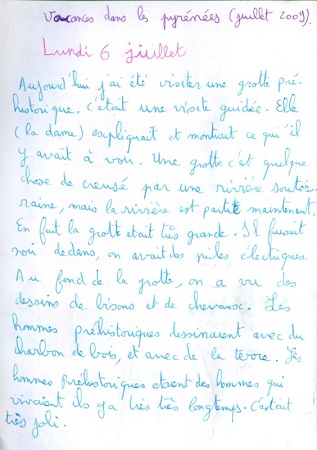 vacances dans les pyrénées (juillet 2009).
Lundi 6 juillet
Aujourd'hui j'ai été visiter une grotte pré-
historique, c'était une visite guidée. Elle
(la dame) expliquait et montrait ce qu'il
y avait à voir. Une grotte c'est quelque
chose de creusé par une rivière souter-
raine, mais la rivière est partie maintenant.
En fait la grotte était très grande. Il faisait
noir dedans, on avait des piles éléctriques.
Au fond de la grotte, on a vu des
dessins de bisons et de chevaux. Les
hommes préhistoriques dessinaient avec du
charbon de bois, et avec de la terre. Les
hommes préhistoriques étaient des hommes qui
vivaient ils y a très très longtemps. C'était
très joli.